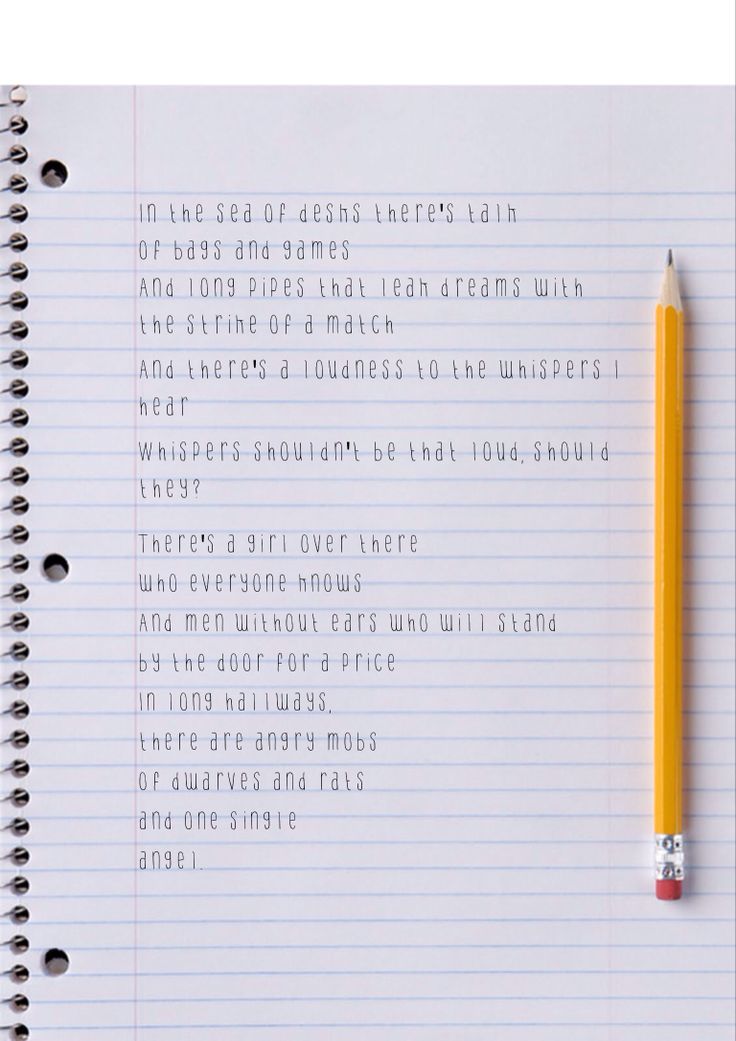 In the sea of desks there's talk
Of bags and games
And long pipes that leak dreams with
the strike of a match
And there's a loudness to the whispers I
hear
Whispers shouldn't be that loud, should
they?
There's a girl over there
who everyone knows
And men without ears who will stand
by the door for a price
In long hallways,
there are angry mobs
Of dwarves and rats
and one single
angel.